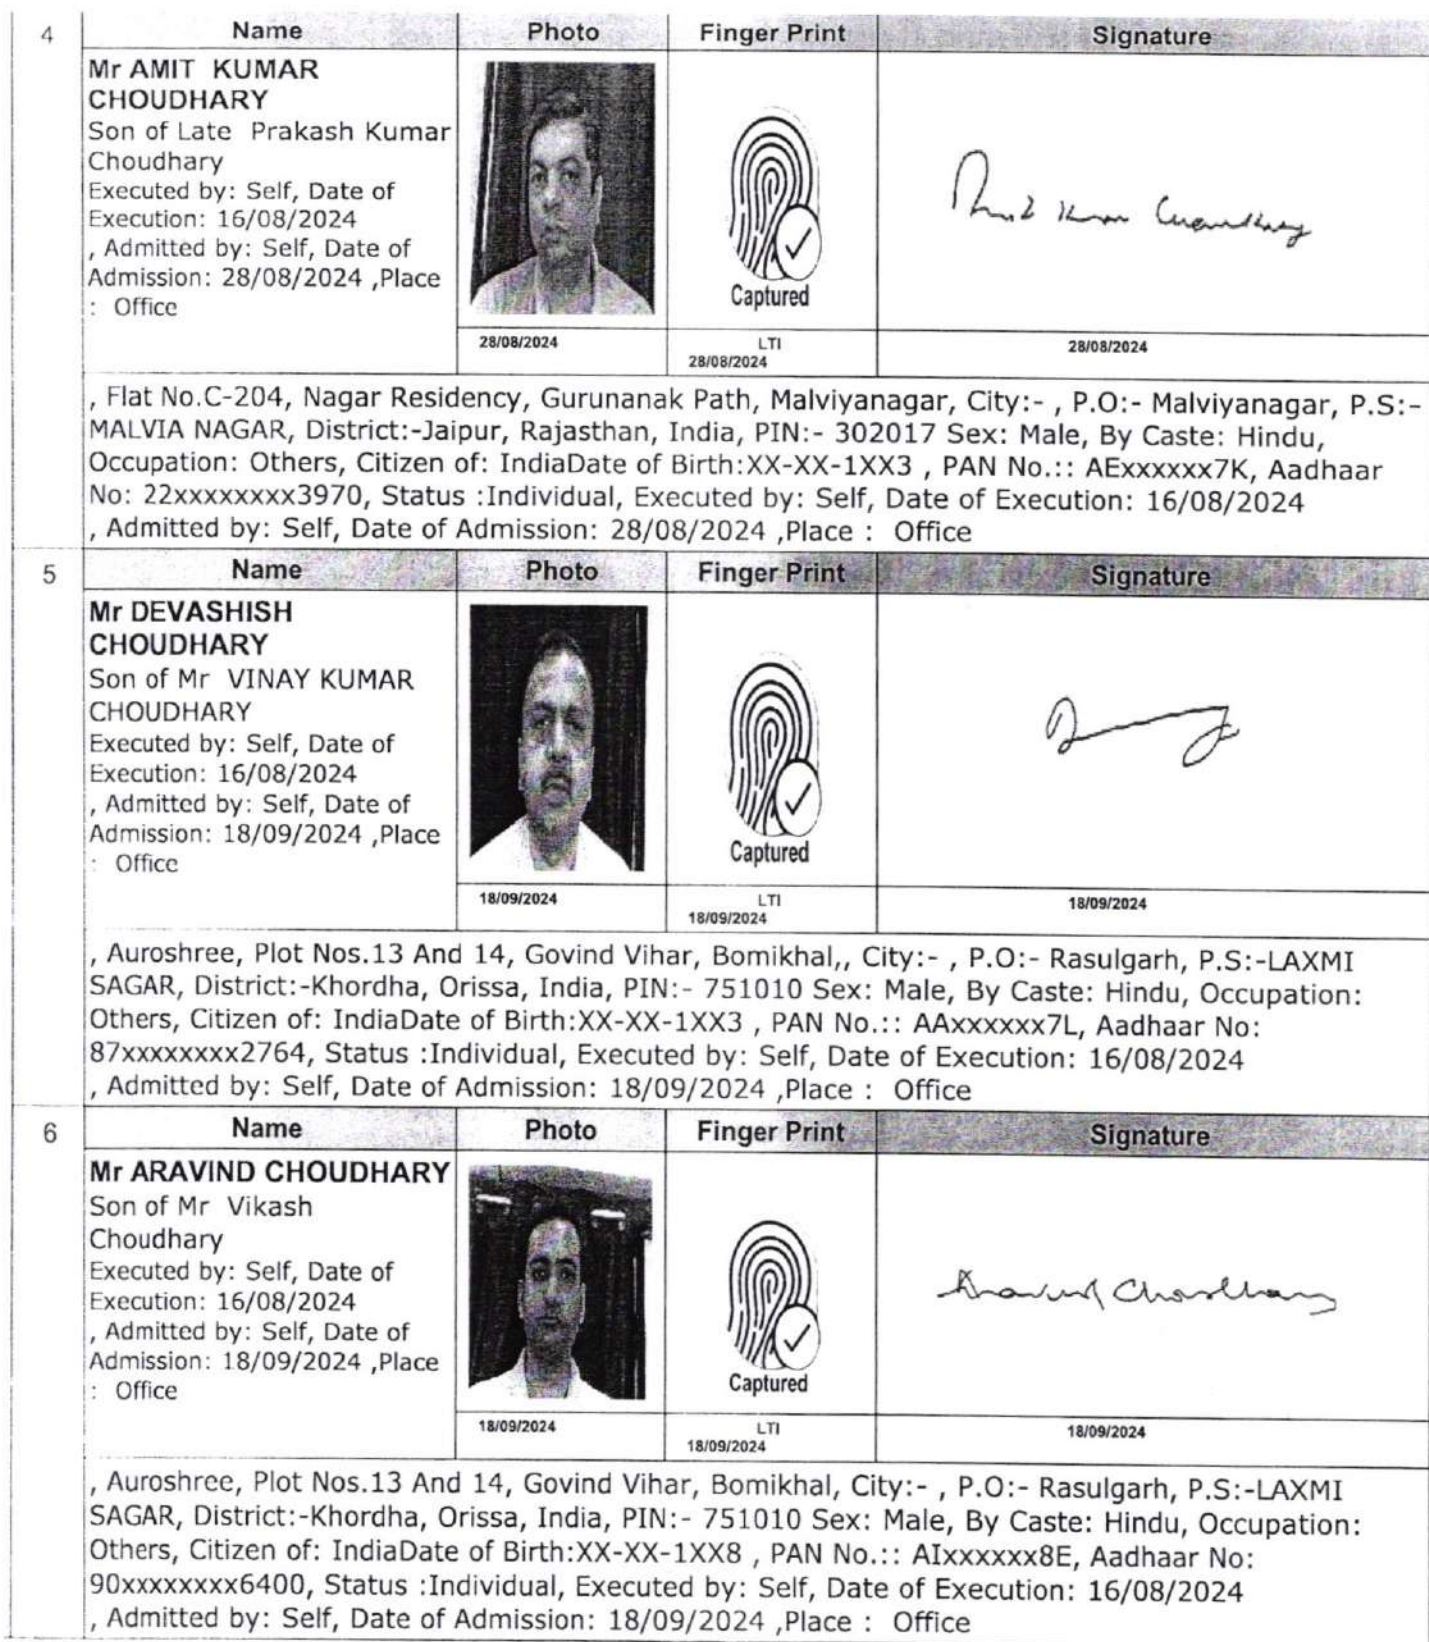 4 Name Photo Finger Print Signature
Mr AMIT KUMAR
CHOUDHARY
Son of Late Prakash Kumar
Choudhary
Executed by: Self, Date of
Execution: 16/08/2024
, Admitted by: Self, Date of
Admission: 28/08/2024 ,Place
: Office
Captured
28/08/2024 LTI 28/08/2024
28/08/2024
, Flat No.C-204, Nagar Residency, Gurunanak Path, Malviyanagar, City:- , P.O:- Malviyanagar, P.S:-
MALVIA NAGAR, District:-Jaipur, Rajasthan, India, PIN:- 302017 Sex: Male, By Caste: Hindu,
Occupation: Others, Citizen of: IndiaDate of Birth:XX-XX-1XX3 , PAN No.:: AExxxxxx7K, Aadhaar
No: 22xxxxxxxx3970, Status :Individual, Executed by: Self, Date of Execution: 16/08/2024
, Admitted by: Self, Date of Admission: 28/08/2024 ,Place : Office
5 Name Photo Finger Print Signature
Mr DEVASHISH
CHOUDHARY
Son of Mr VINAY KUMAR
CHOUDHARY
Executed by: Self, Date of
Execution: 16/08/2024
, Admitted by: Self, Date of
Admission: 18/09/2024 ,Place
: Office
Captured
18/09/2024 LTI 18/09/2024
18/09/2024
, Auroshree, Plot Nos.13 And 14, Govind Vihar, Bomikhal,, City:- , P.O:- Rasulgarh, P.S:-LAXMI
SAGAR, District:-Khordha, Orissa, India, PIN:- 751010 Sex: Male, By Caste: Hindu, Occupation:
Others, Citizen of: IndiaDate of Birth:XX-XX-1XX3 , PAN No.:: AAxxxxxx7L, Aadhaar No:
87xxxxxxxx2764, Status :Individual, Executed by: Self, Date of Execution: 16/08/2024
, Admitted by: Self, Date of Admission: 18/09/2024 ,Place : Office
6 Name Photo Finger Print Signature
Mr ARAVIND CHOUDHARY
Son of Mr Vikash
Choudhary
Executed by: Self, Date of
Execution: 16/08/2024
, Admitted by: Self, Date of
Admission: 18/09/2024 ,Place
: Office
Captured
Aravind Choudhary
18/09/2024 LTI 18/09/2024
18/09/2024
, Auroshree, Plot Nos.13 And 14, Govind Vihar, Bomikhal, City:- , P.O:- Rasulgarh, P.S:-LAXMI
SAGAR, District:-Khordha, Orissa, India, PIN:- 751010 Sex: Male, By Caste: Hindu, Occupation:
Others, Citizen of: IndiaDate of Birth:XX-XX-1XX8 , PAN No.:: AIxxxxxx8E, Aadhaar No:
90xxxxxxxx6400, Status :Individual, Executed by: Self, Date of Execution: 16/08/2024
, Admitted by: Self, Date of Admission: 18/09/2024 ,Place : Office